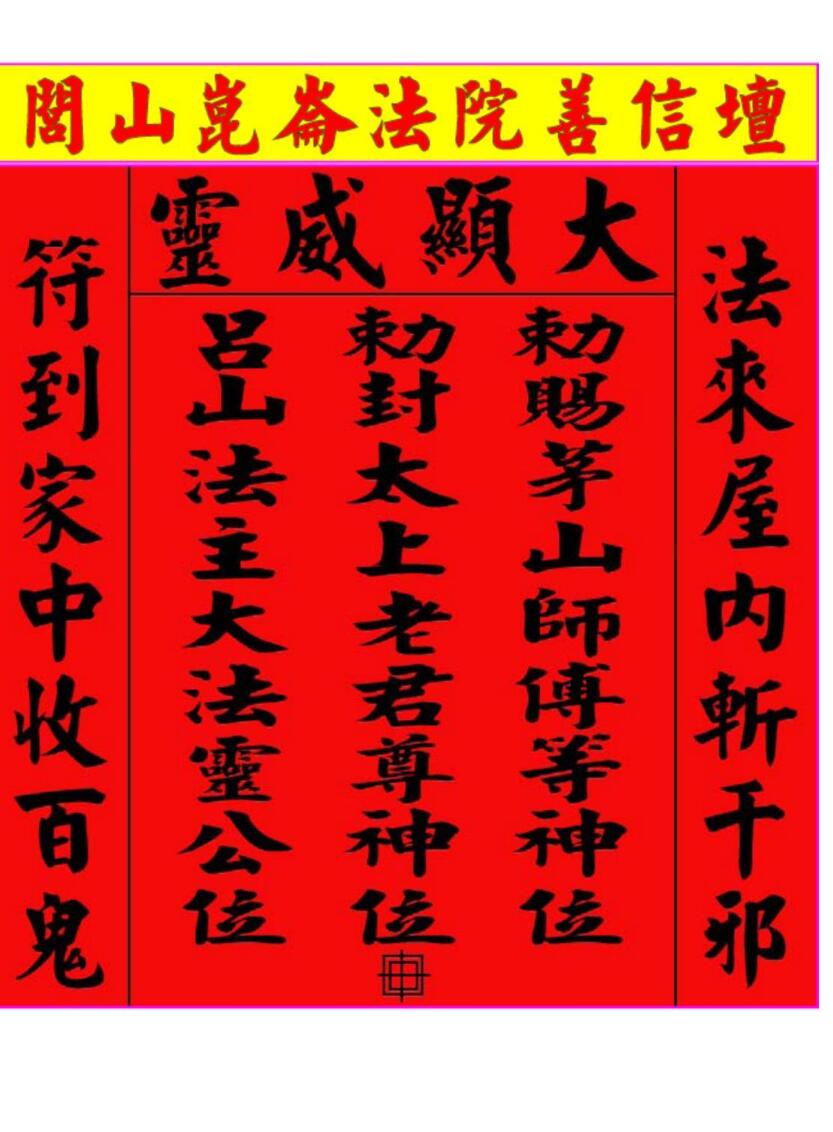 閭山崑崙法院善信壇
大顯威靈
法來屋内斬千邪
勅賜茅山師傅等神位
勅封太上老君尊神位
呂山法主大法靈公位
符到家中收百鬼